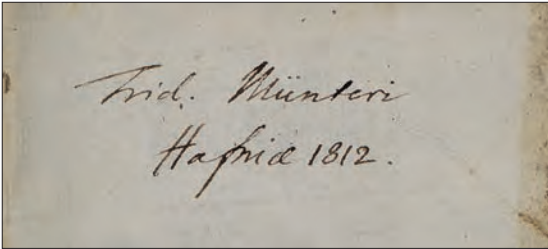 Frid. Münteri
Hafniæ 1812.